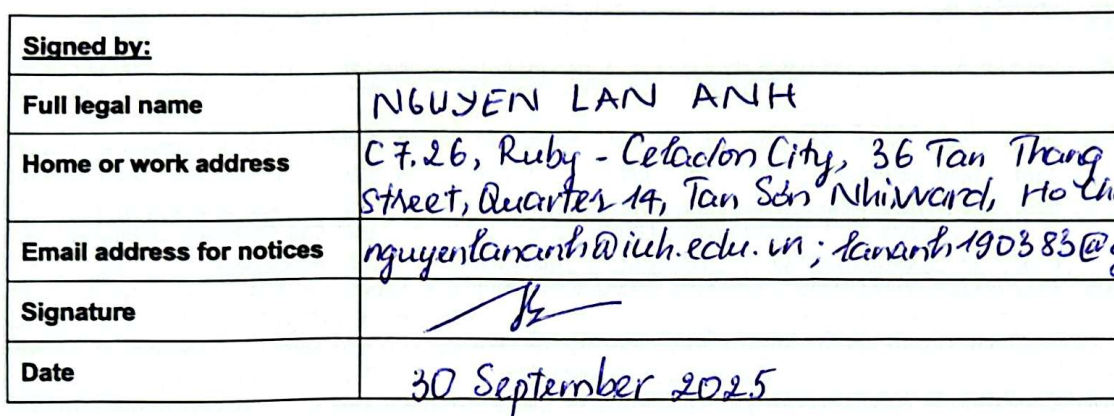 Signed by:
Full legal name NGUYEN LAN ANH
Home or work address C7.26, Ruby - Celadon City, 36 Tan Thang
street, Quarter 14, Tan Sơn Nhì ward, Ho Chi
Email address for notices nguyenlananh@iuh.edu.vn; lananh190383@g
Signature
Date 30 September 2025